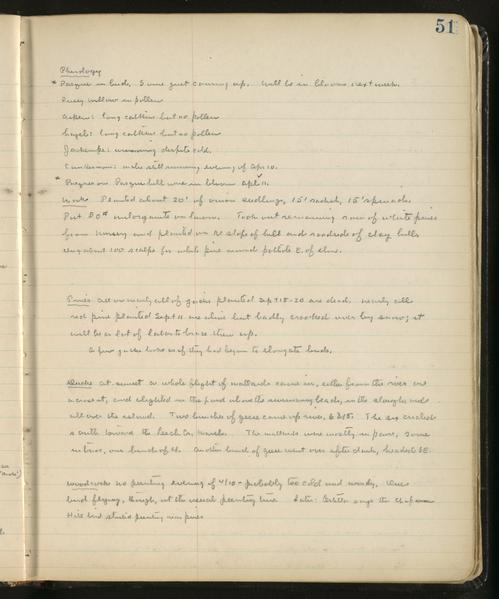 51
Phenology
* Pasque in bud. Some just coming up. Will be in bloom next week.
Pussy willow in pollen
Aspen: long catkins but no pollen
Hazel: long catkins but no pollen
Jacksnipe: winnowing despite cold.
: still running evening of Apr 10.
* Pasque on Pasque hill were in bloom Apl 11.
Work Planted about 20' of onion seedlings, 15' radish, 15' spinach.
Put 80# milorganite on lawn. Took out remaining row of white pines
from nursery and planted on N. slope of hill and roadside of clay hill.
Dug about 100 scalps for white pine around pothole E. of
Pines All or nearly all of pines planted Sept 15-20 are dead. Nearly all
red pine planted Sept 11 are alive but badly crooked over by snow; it
will be a lot of labor to brace them up.
A few pines look as if they had begun to elongate buds.
Ducks At sunset a whole flight of mallards came in, either from the river or
a coast, and alighted in the pond above the swimming beach, in the slough and
all over the island. Two bunches of geese came up river, 6 & 18. The six circled
south toward the Leech Cr. marsh. The mallards were mostly in pairs, some
in trios, one bunch of 4. Another bunch of geese went over after dark, headed SE.
Woodcocks no peenting evening of 4/10 - probably too cold and windy. One
bird flying, though, at the usual peenting time. Later: says the Chapman
Hill bird started peenting